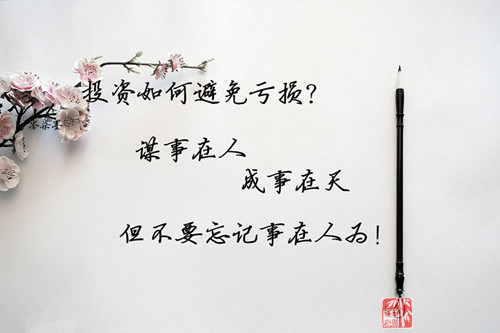 投资如何避免亏损?
谋事在人
成事在天
但不要忘记事在人为!